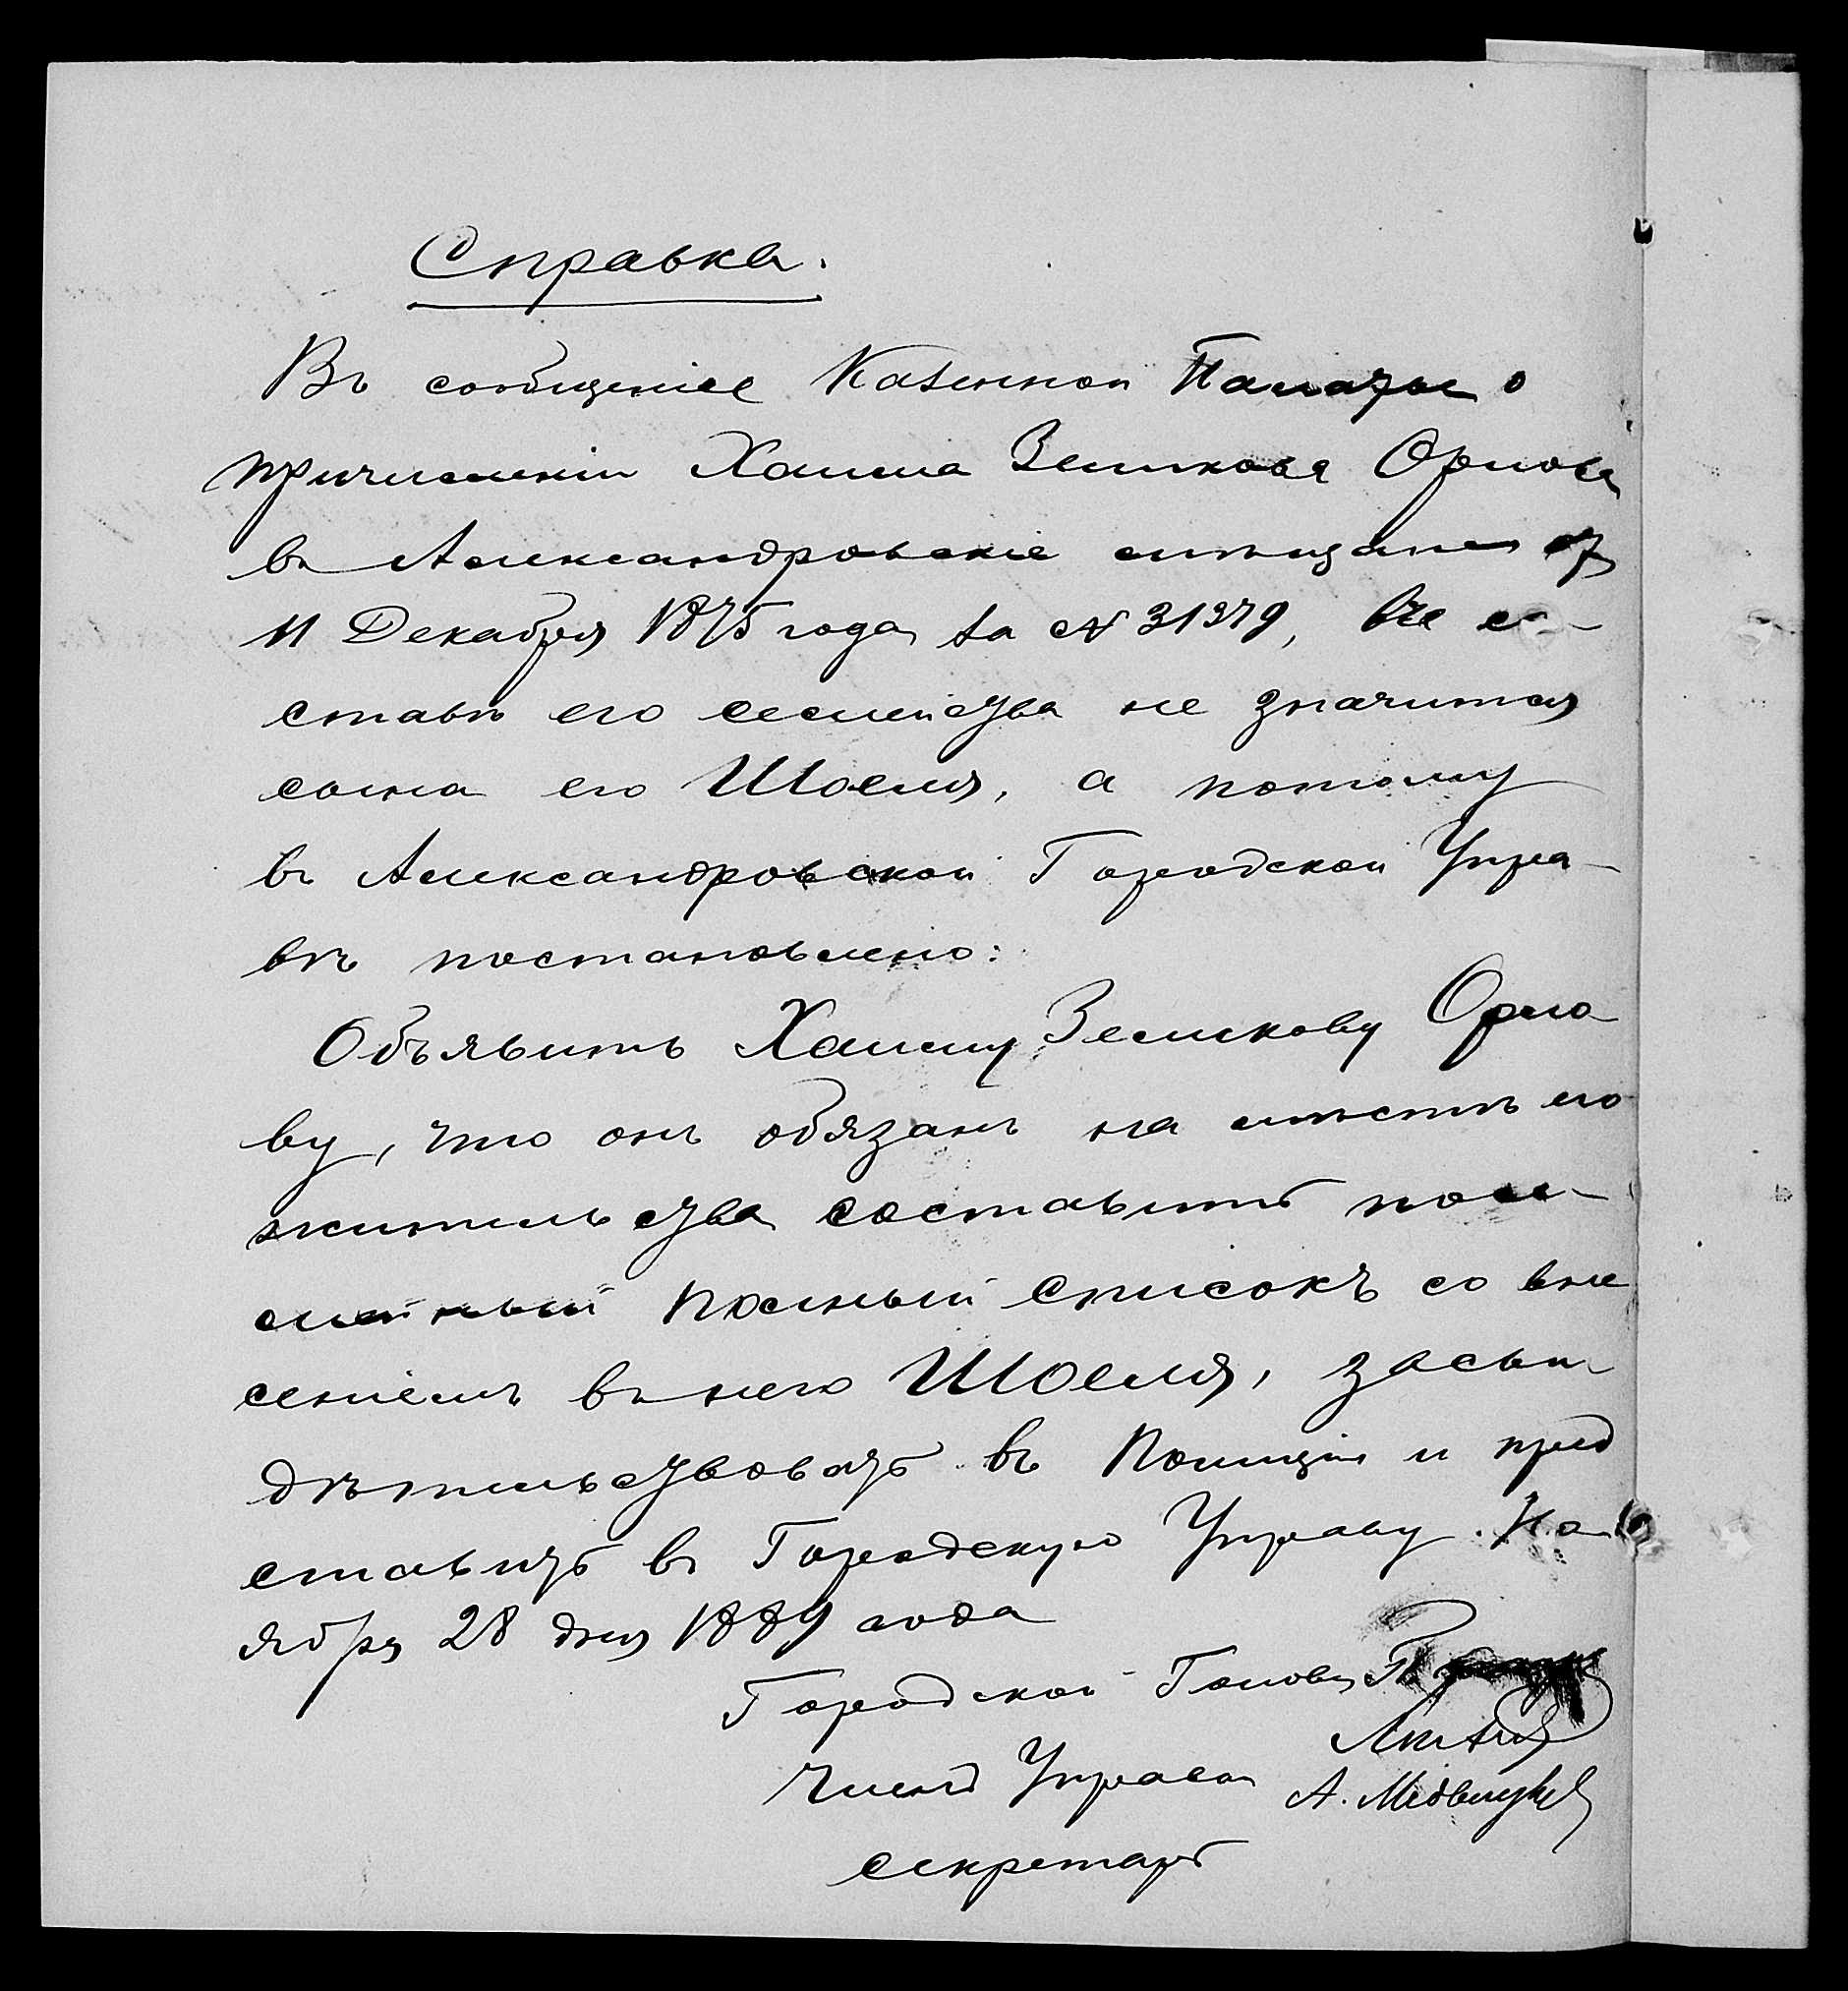 Справка.
Въ сообщеніе Казенной Палаты о
причисленіи Хаима Зеликова Орлова
въ Александровскіе мѣщане отъ
11 Декабря 1875 года за № 31379, въ со-
ставѣ его семейства не значится
сына его Шоеля, а потому
въ Александровской Городской Упра-
вѣ постановлено:
Объявить Хаиму Зеликову Орло
ву, что онъ обязанъ на мѣстѣ его
жительства составить посе-
мейный полный списокъ со вне
сеніемъ въ него Шоеля, засви
дѣтельствовать въ Полиціи и пред
ставить въ Городскую Управу. Но
ября 28 дня 1889 года
Городской Голова
Членъ Управы
Секретарь